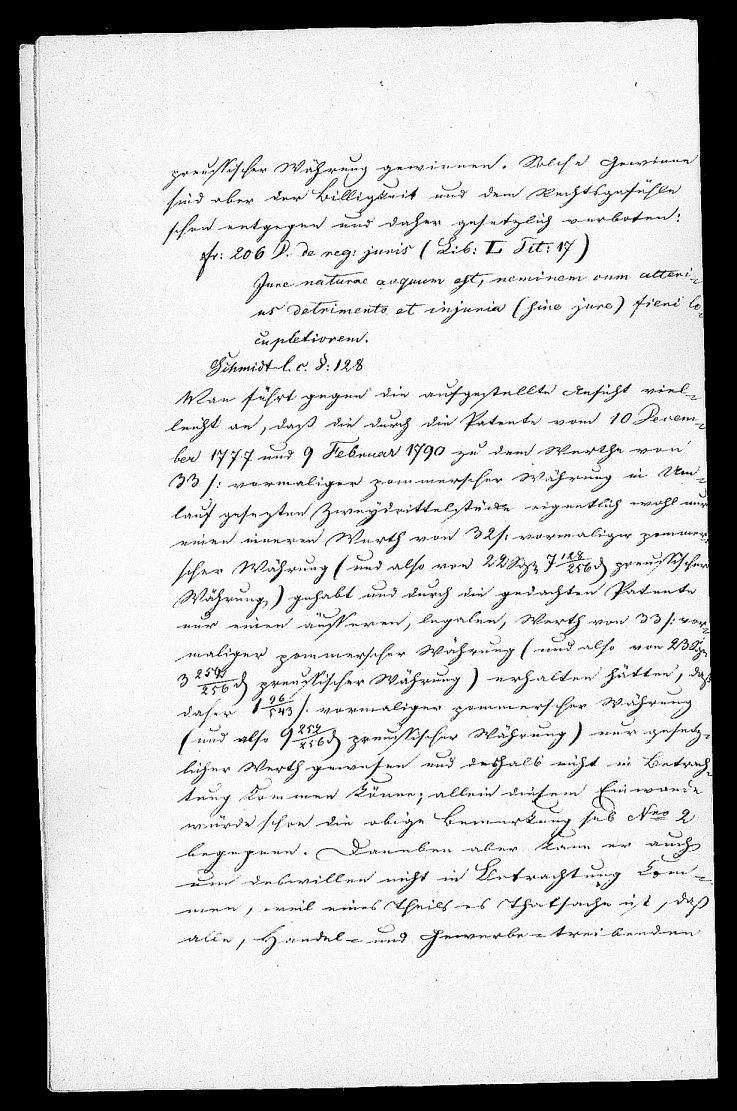 preussischer Währung gewinnen. Solche Gewinne
sind aber der Billigkeit und dem Rechtsgefühle
schon entgegen und daher gesetzlich verboten:
fr: 206 D. de reg: juris (Lib: L Tit: 17)
Jure naturae aequum est, neminem cum alteri-
us detrimento et injuria (sine jure) fieni lo-
cupletiorem.
Schmidt l. c. §: 128
Man führt gegen die aufgestellte Ansicht viel-
leicht an, daß die durch die Patente vom 10 Decem-
ber 1777 und 9 Februar 1790 zu dem Werthe von
33 ß: vormaliger pommerscher Währung in Um-
lauf gesezten Zweydrittelstücke eigentlich wohl nur
einen inneren Werth von 32 ß: vormaliger pommer-
scher Währung (und also von 22 Sgr 7 128/256 d preussischer
Währung) gehabt und durch die gedachten Patente
nur einen äusseren, legalen, Werth von 33 ß: vor-
maliger pommerscher Währung (und also von 23 Sgr
3 /256 d preussischer Währung) erhalten hätten, daß
daher 1 96/543 ß: vormaliger pommerscher Währung
(und also 9 252/256 d preussischer Währung) nur gesetz-
licher Werth gewesen und deshalb nicht in Betrach-
tung kommen könne; allein diesem Einwande
würde schon die obige Bemerkung sub Nro 2
begegnen. Daneben aber kann er auch
um deswillen nicht in Betrachtung kom-
men, weil eines Theils es Thatsache ist, daß
alle, Handel- und Gewerbe-treibenden